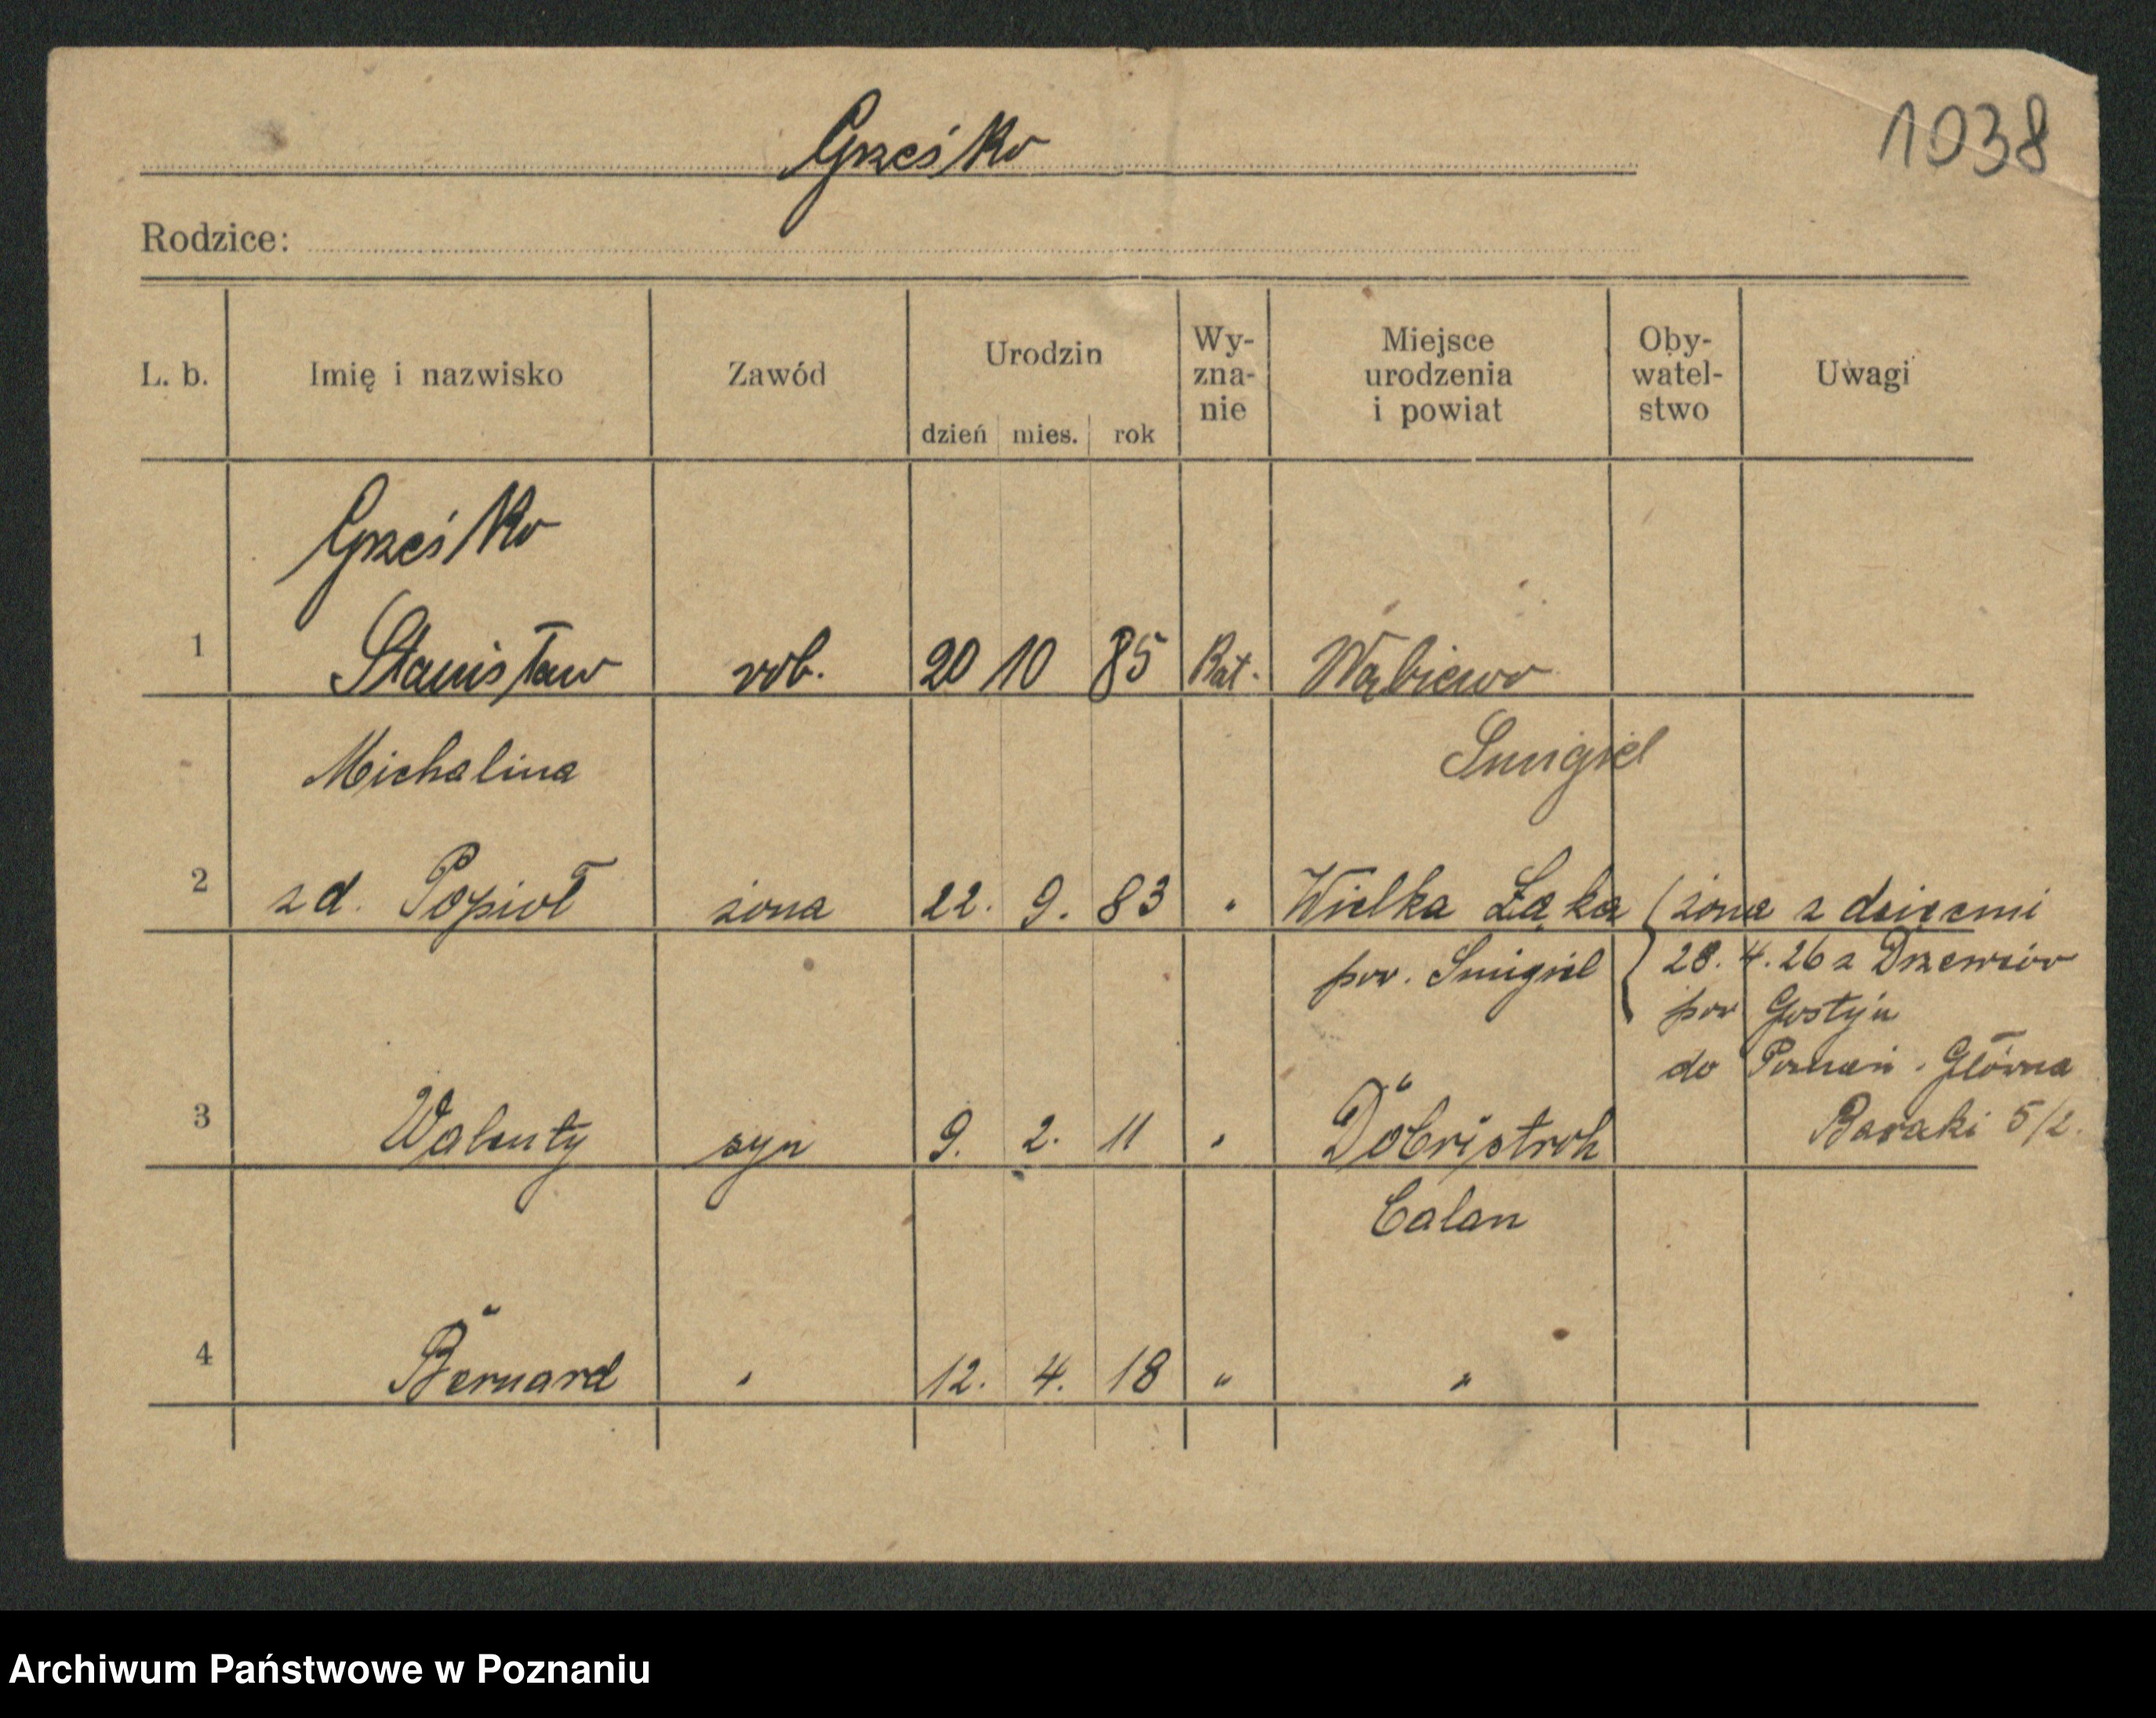 1038
Grześko
Rodzice:
L. b. Imię i nazwisko Zawód Urodzin dzień mies. rok Wy-zna-nie Miejsce urodzenia i powiat Oby-watel-stwo Uwagi
Grześko
1 Stanisław rob. 20 10 85 Kat. Wąbiewo
Michalina Smigiel
2 zd. Popioł żona 22. 9. 83 " Wielka Łąka żona z dziećmi
pow. Smigiel 28. 4. 26 z
pow Gostyń
do Poznań - Główna
Baraki 5/2.
3 Walenty syn 9. 2. 11 " Döbristroh
Calan
4 Bernard " 12. 4. 18 " "
Archiwum Państwowe w Poznaniu